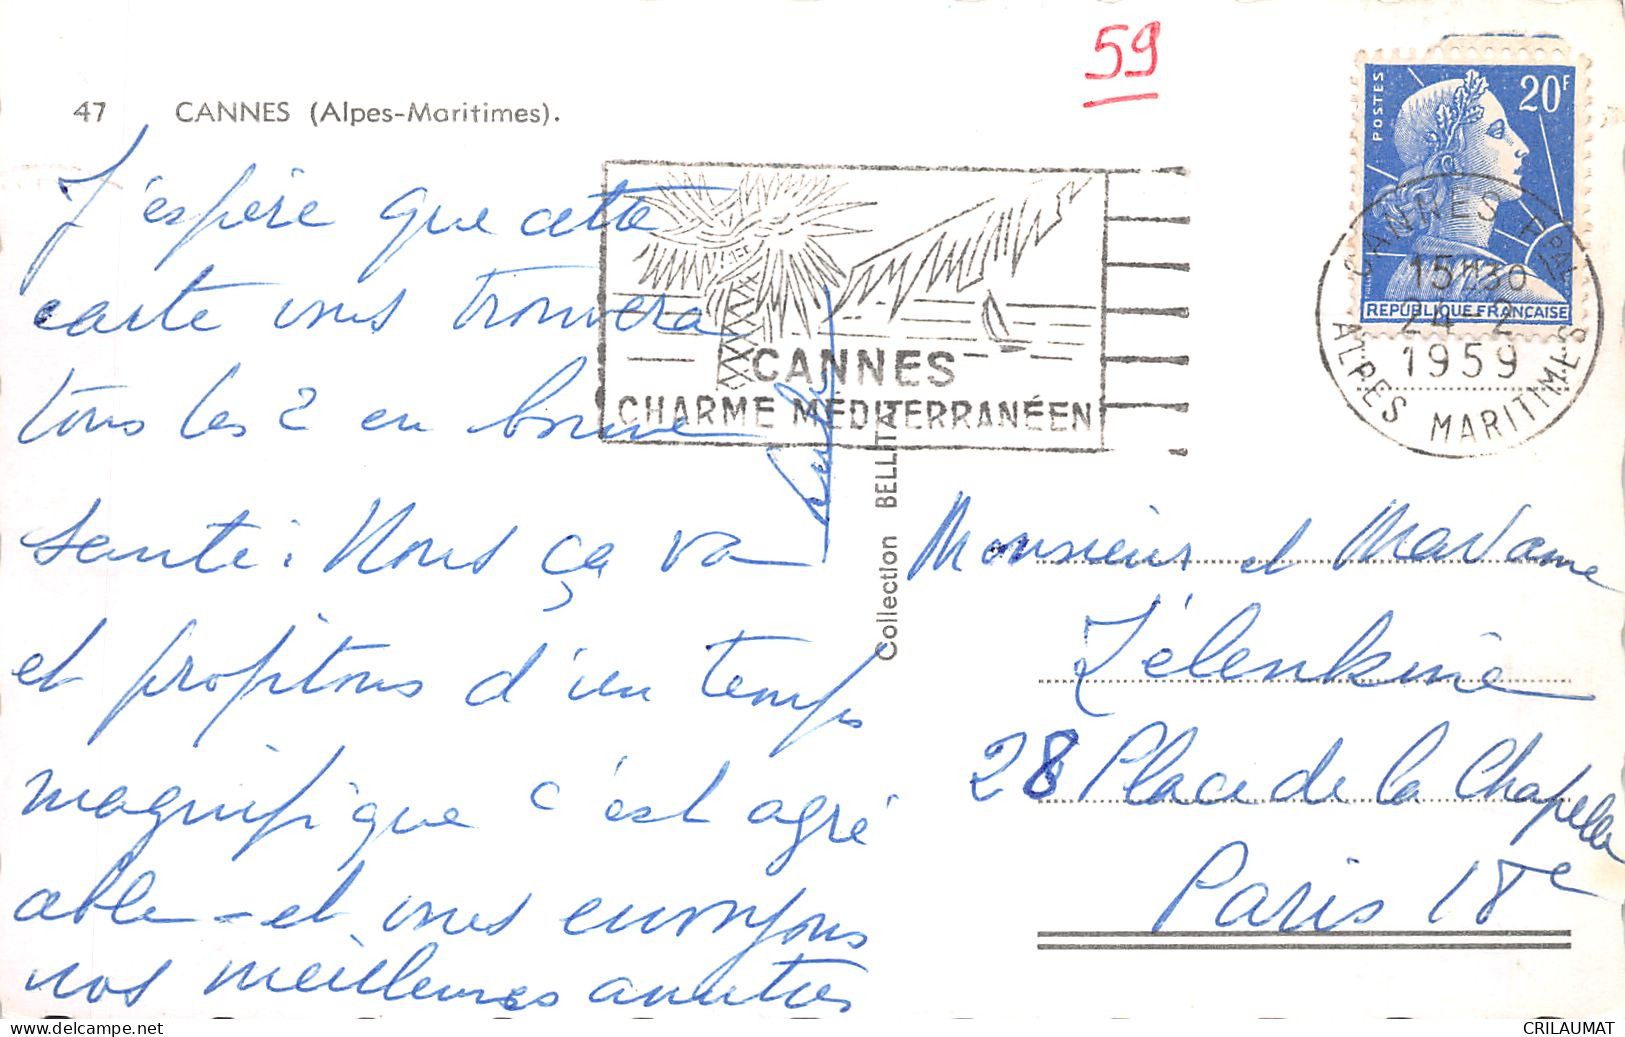 59
47 CANNES (Alpes-Maritimes).
POSTES
20F
REPUBLIQUE FRANCAISE
CANNES PPAL
15H30
24-2
1959
ALPES MARITIMES
CANNES
CHARME MÉDITERRANÉEN
J'espère que cette
carte vous trouvera
tous les 2 en bonne
santé. Nous ça va
et profitons d'un temps
magnifique c'est agré
able - et vous envoyons
nos meilleures amitiés
Collection BELLITA
Monsieur et Madame
Zélenkine
28 Place de la Chapelle
Paris 18e
CRILAUMAT
www.delcampe.net